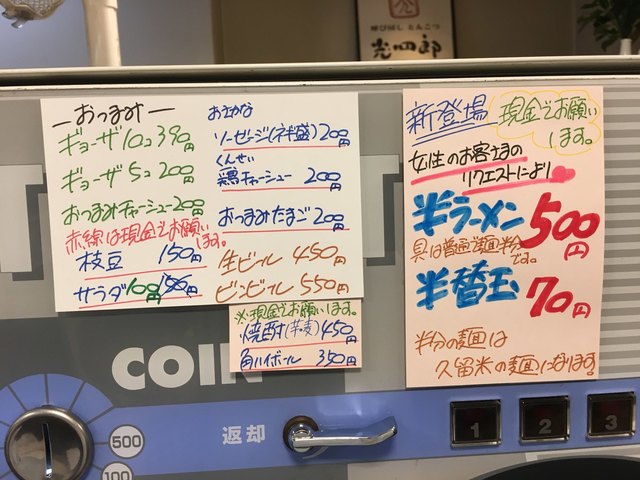 呼び戻し とんこつ
光四郎
ーおつまみー
ギョーザ10コ 390円
ギョーザ5コ 200円
おつまみチャーシュー200円
赤線は現金でお願いします。
枝豆 150円
サラダ 100円 150円
おさかな
ソーセージ(ネギ盛)200円
くんせい
鶏チャーシュー 200円
おつまみたまご200円
生ビール 450円
ビンビール 550円
※現金でお願います。
焼酎(芋・麦)450円
角ハイボール 350円
新登場
現金でお願い
します。
女性のお客さまの
リクエストにより
半ラーメン500円
具は普通、麺半分です。
半替玉 70円
半分の麺は
久留米の麺になります!
COIN
返却
500
100
1
2
3